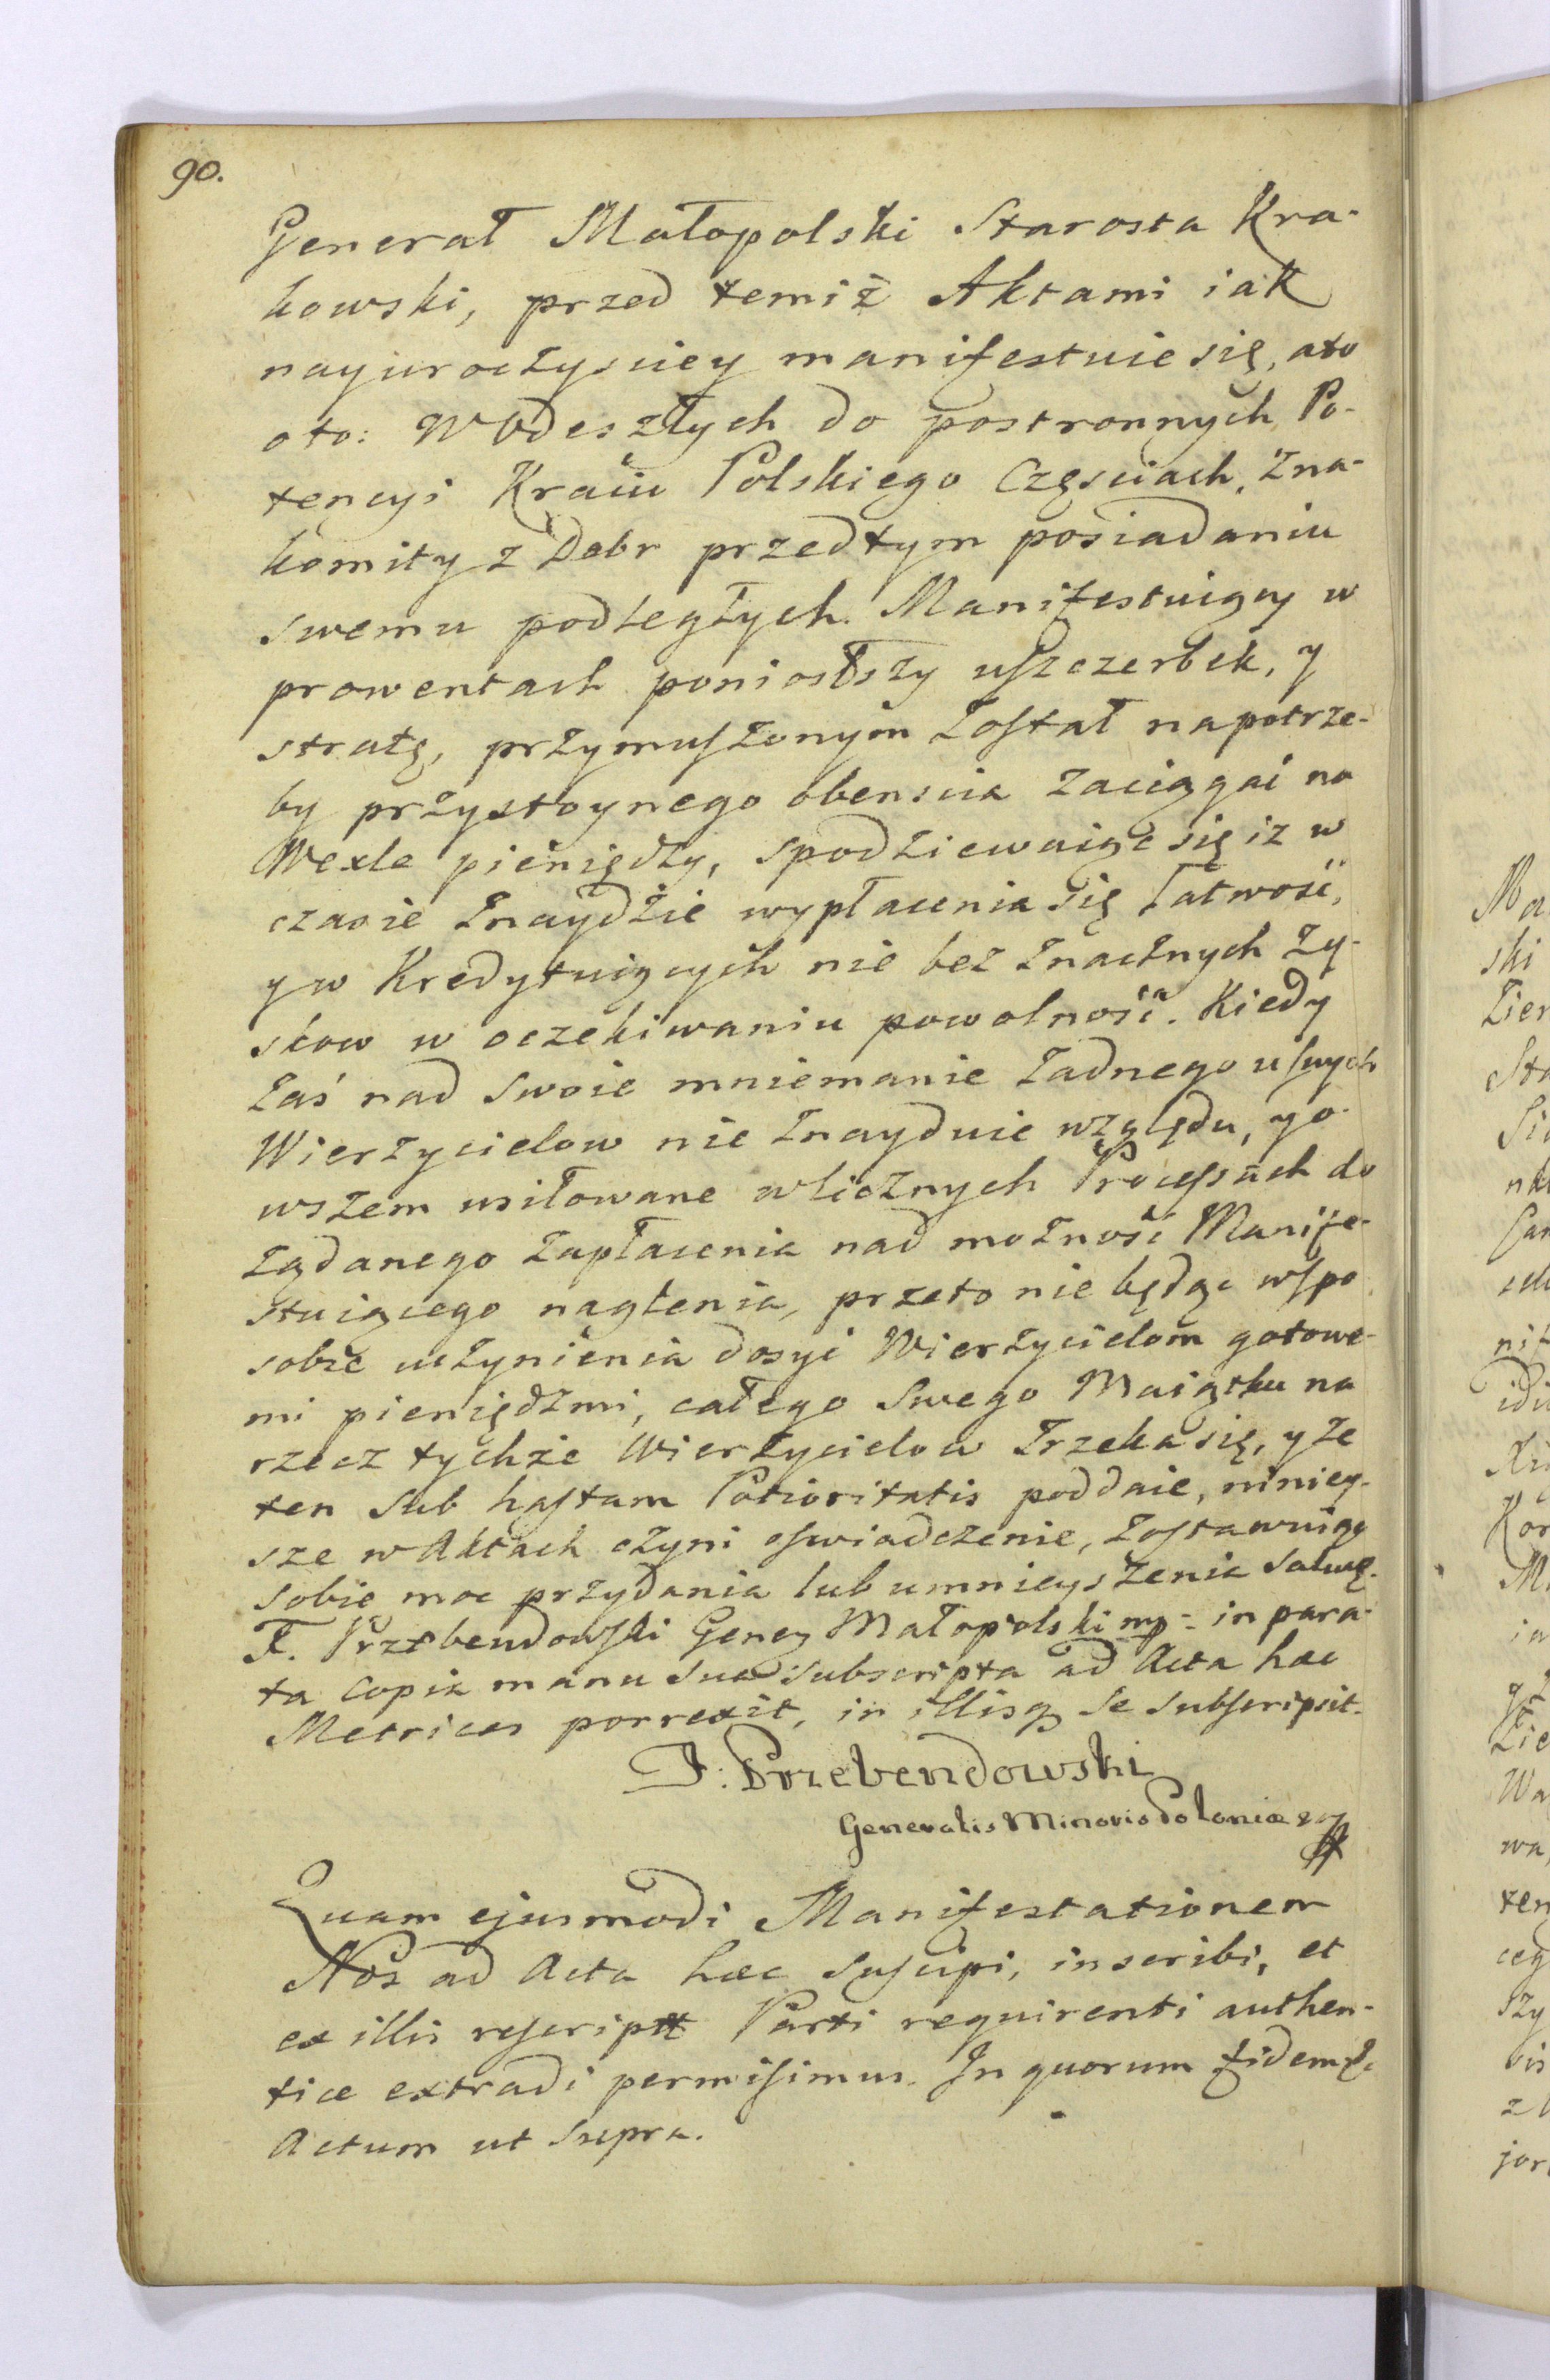 90.
Generał Małopolski Starosta Kra-
kowski, przed temiż Aktami iak
nayuroczysciey manifestuie się, ato
oto: W Odeszłych do postronnych Po-
tencyi Kraiu Polskiego Częsciach, zna-
komity z Dobr przedtym posiadaniu
swemu podległych. Manifestuiący w
prowentach poniosłszy uszczerbek, y
stratę, przymuszonym został na potrze-
by przystoynego obenscia zaciągać na
Wexle pieniędzy, spodziewaiąc się iz w
czasie znaydzie wypłacenia się łatwość,
y w Kredytuiących nie bez znacznych zy-
skow w oczekiwaniu powolność. Kiedy
zaś nad swoie mniemanie żadnego u swych
Wierzycielow nie znayduie względu, y o-
wszem usiłowane w licznych Processach do
żądanego zapłacenia nad możność Manife-
stuiącego naglenia, przeto nie będąc w spo
sobie uczynienia dosyć Wierzycielom gotowe-
mi pieniędzmi, całego Swego Maiątku na
rzecz tychże Wierzycielow zrzeka się, y że
ten Sub hastam Potioritatis poddaie, niniey-
sze w Aktach czyni oswiadczenie, zostawuiąc
sobie moc przydania lub umnieyszenia salwę.
F. Przebendowski Gener Małopolski mp: in para-
ta copia manu sua subscripta ad Acta hæc
Metrices porrexit, in illisq se subscripsit.
F: Przebendowski
Generalis Minoris Poloniæ mp
Quam ejusmodi Manifestationem
Nos ad Acta hæc suscipi, inscribi, et
ex illis rescriptt Parti requirenti authen-
tice extradi permisimus. In quorum fidem &c
Actum ut supra.